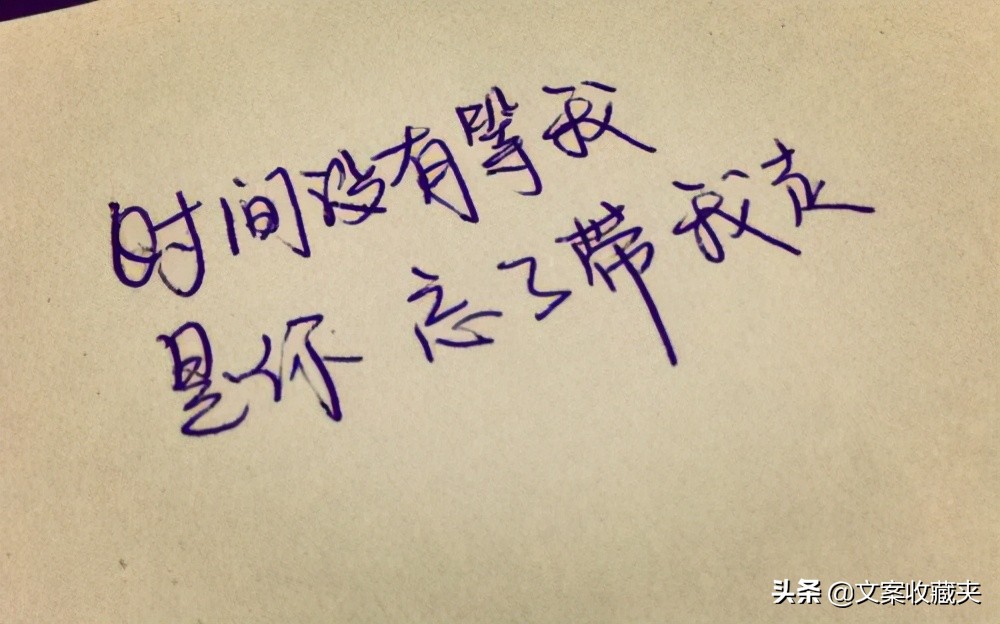 时间没有等我
是你 忘了带我走
头条 @文案收藏夹